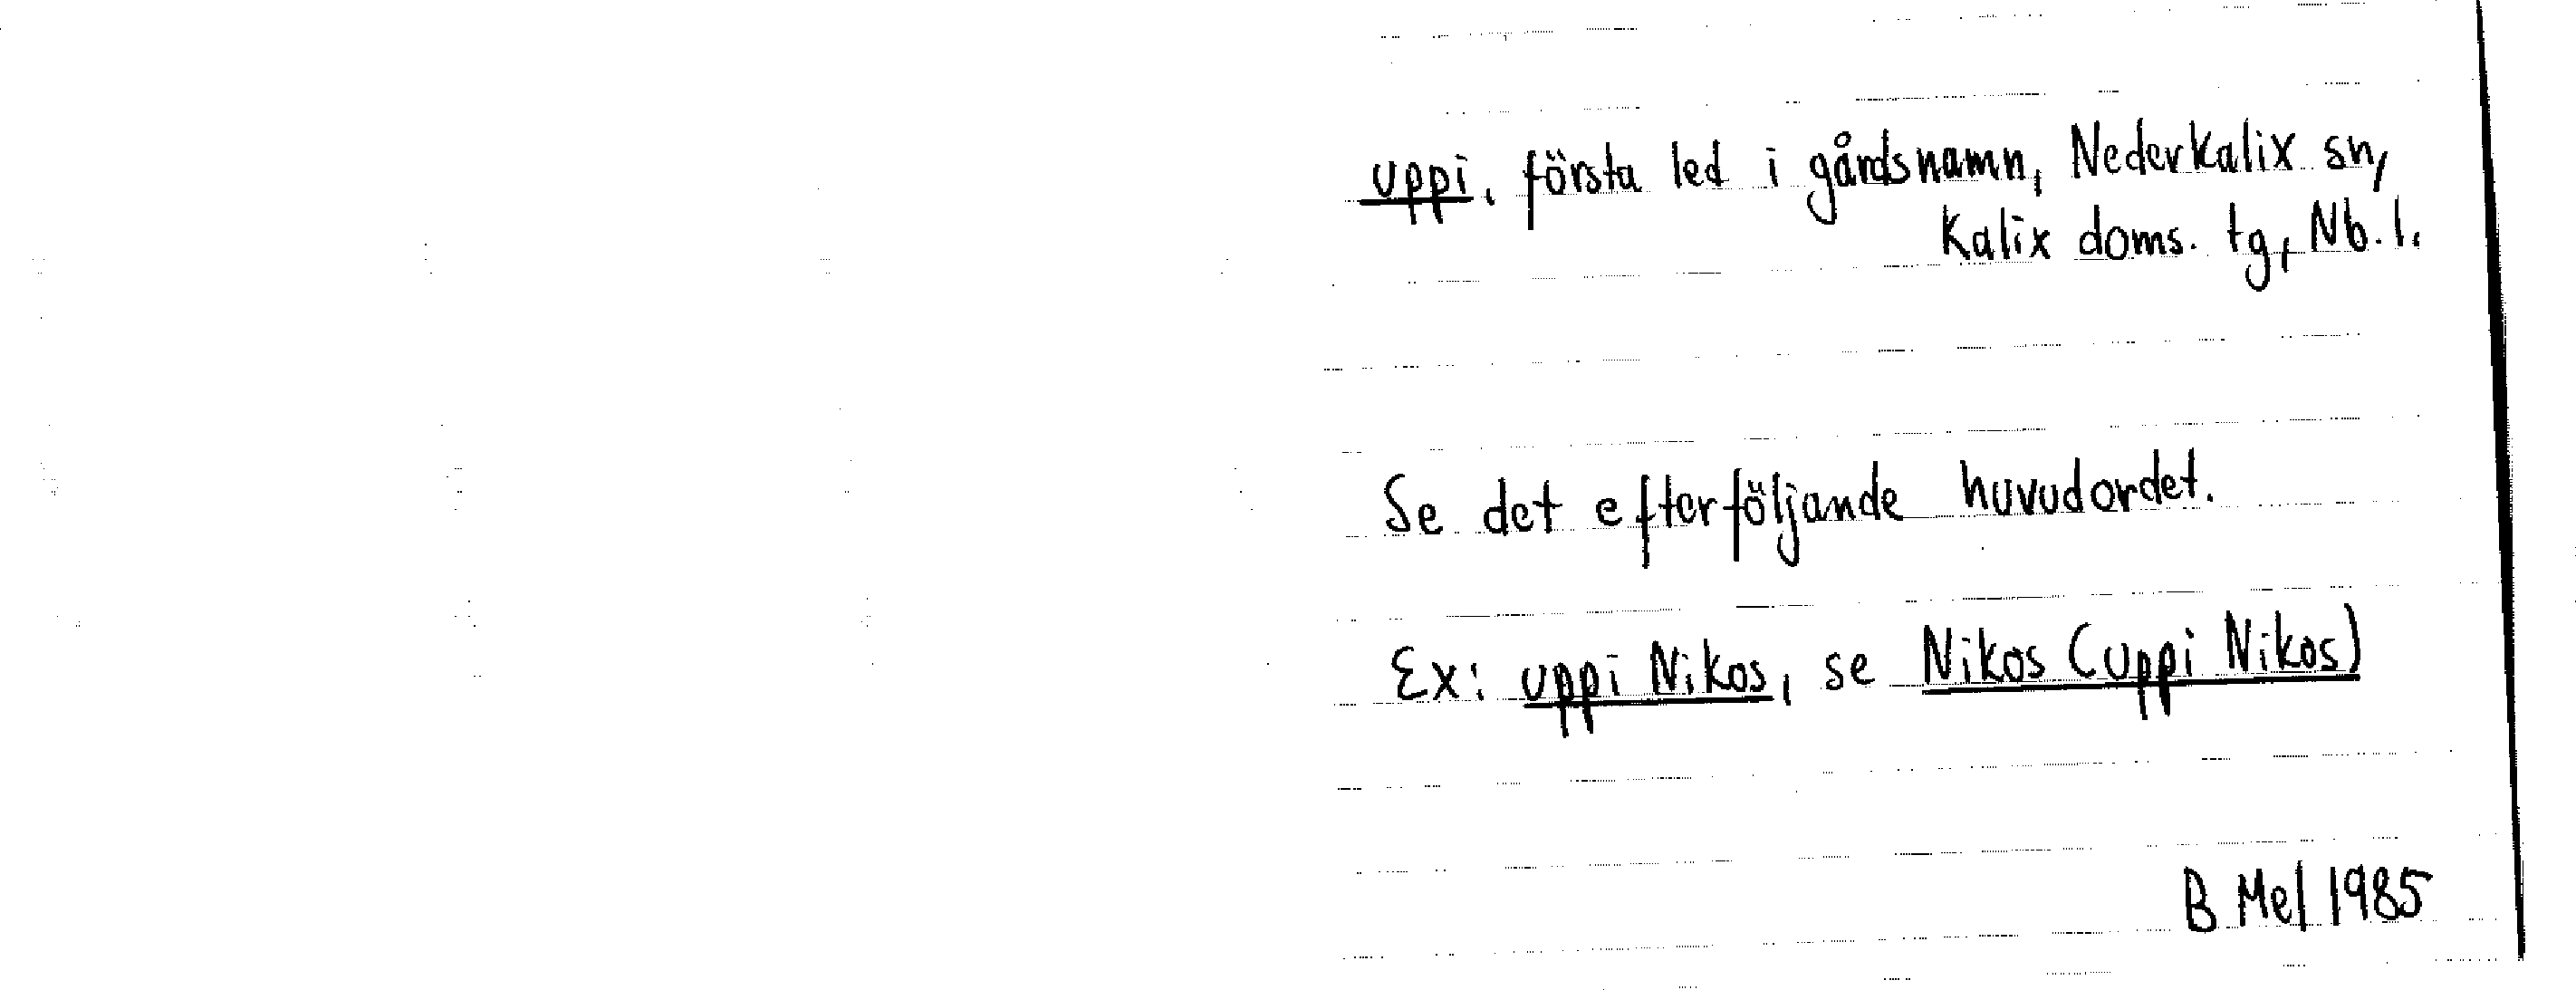 uppi, första led i gårdsnamn, Nederkalix sn,
Kalix doms. tg, Nb. l.
Se det efterföljande huvudordet.
Ex: uppi Nikos, se Nikos (uppi Nikos)
B Mel 1985